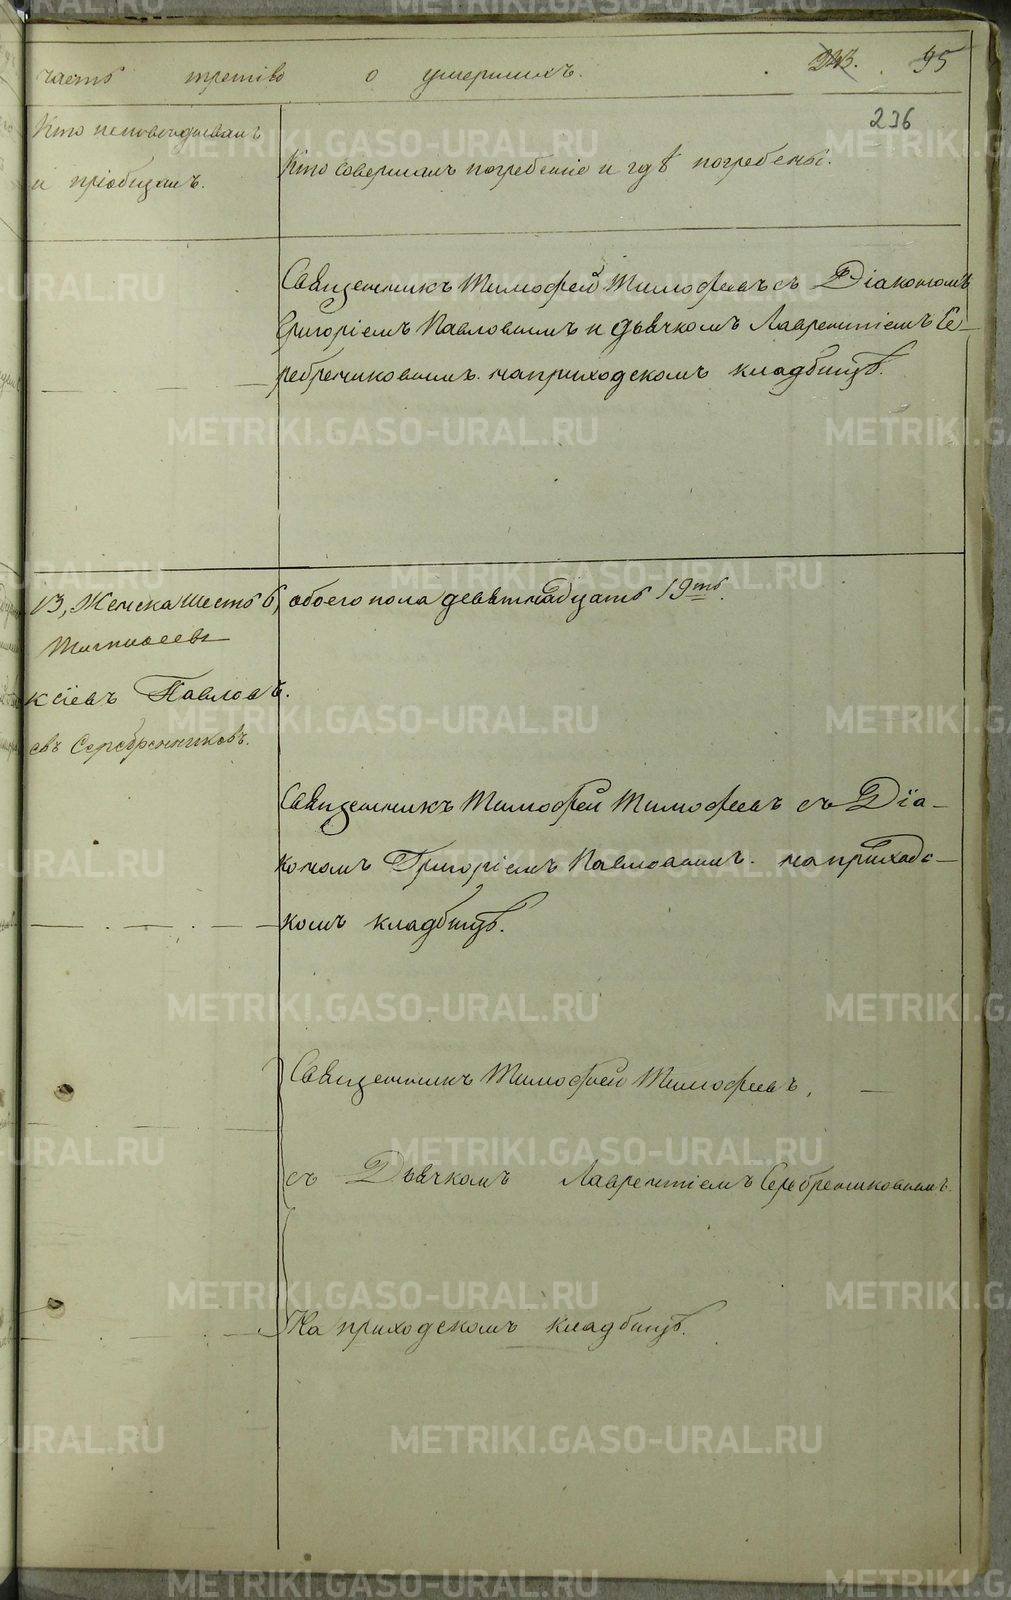 часть третiя о умершихъ. 243. 95
236
Кто исповѣдывалъ
и прiобщалъ.
Кто совершалъ погребенiе и гдѣ погребены.
Священникъ Тимофей Тимофеевъ съ Дiакономъ
Григорiемъ Павловымъ и дьячкомъ Лаврентiемъ Се-
ребренниковымъ. на приходскомъ кладбищѣ.
13, Женска шесть 6, обоего пола девятнадцать 19ть.
ксiевъ Павловъ.
евъ Серебренниковъ.
Священникъ Тимофей Тимофеевъ съ Дiа-
кономъ Григорiемъ Павловымъ. на приходс-
комъ кладбищѣ.
Священникъ Тимофей Тимофеевъ,
съ Дьячкомъ Лаврентiемъ Серебренниковымъ.
На приходскомъ кладбищѣ.
METRIKI.GASO-URAL.RU